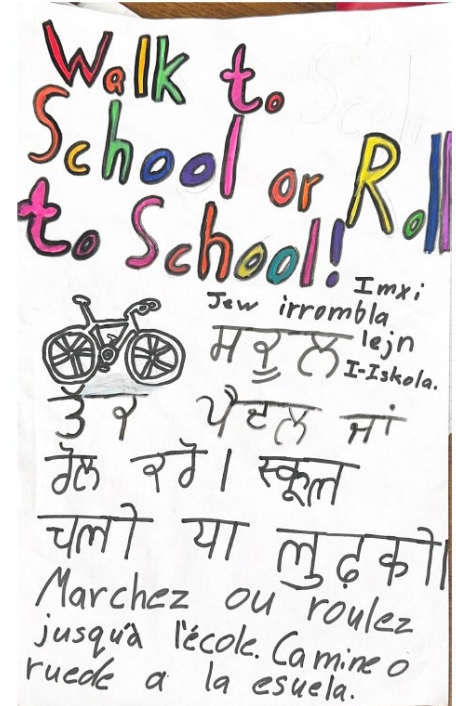 Walk to
School or Roll
to School!
Imxi
Jew irrombla
lejn
ਸਕੂਲ
I-Iskola.
ਤੱਕ ਪੈਦਲ ਜਾਂ
ਰੋਲ ਕਰੋ। स्कूल
चलो या लुढ़को।
Marchez ou roulez
jusqu'à l'école. Camine o
ruede a la esuela.